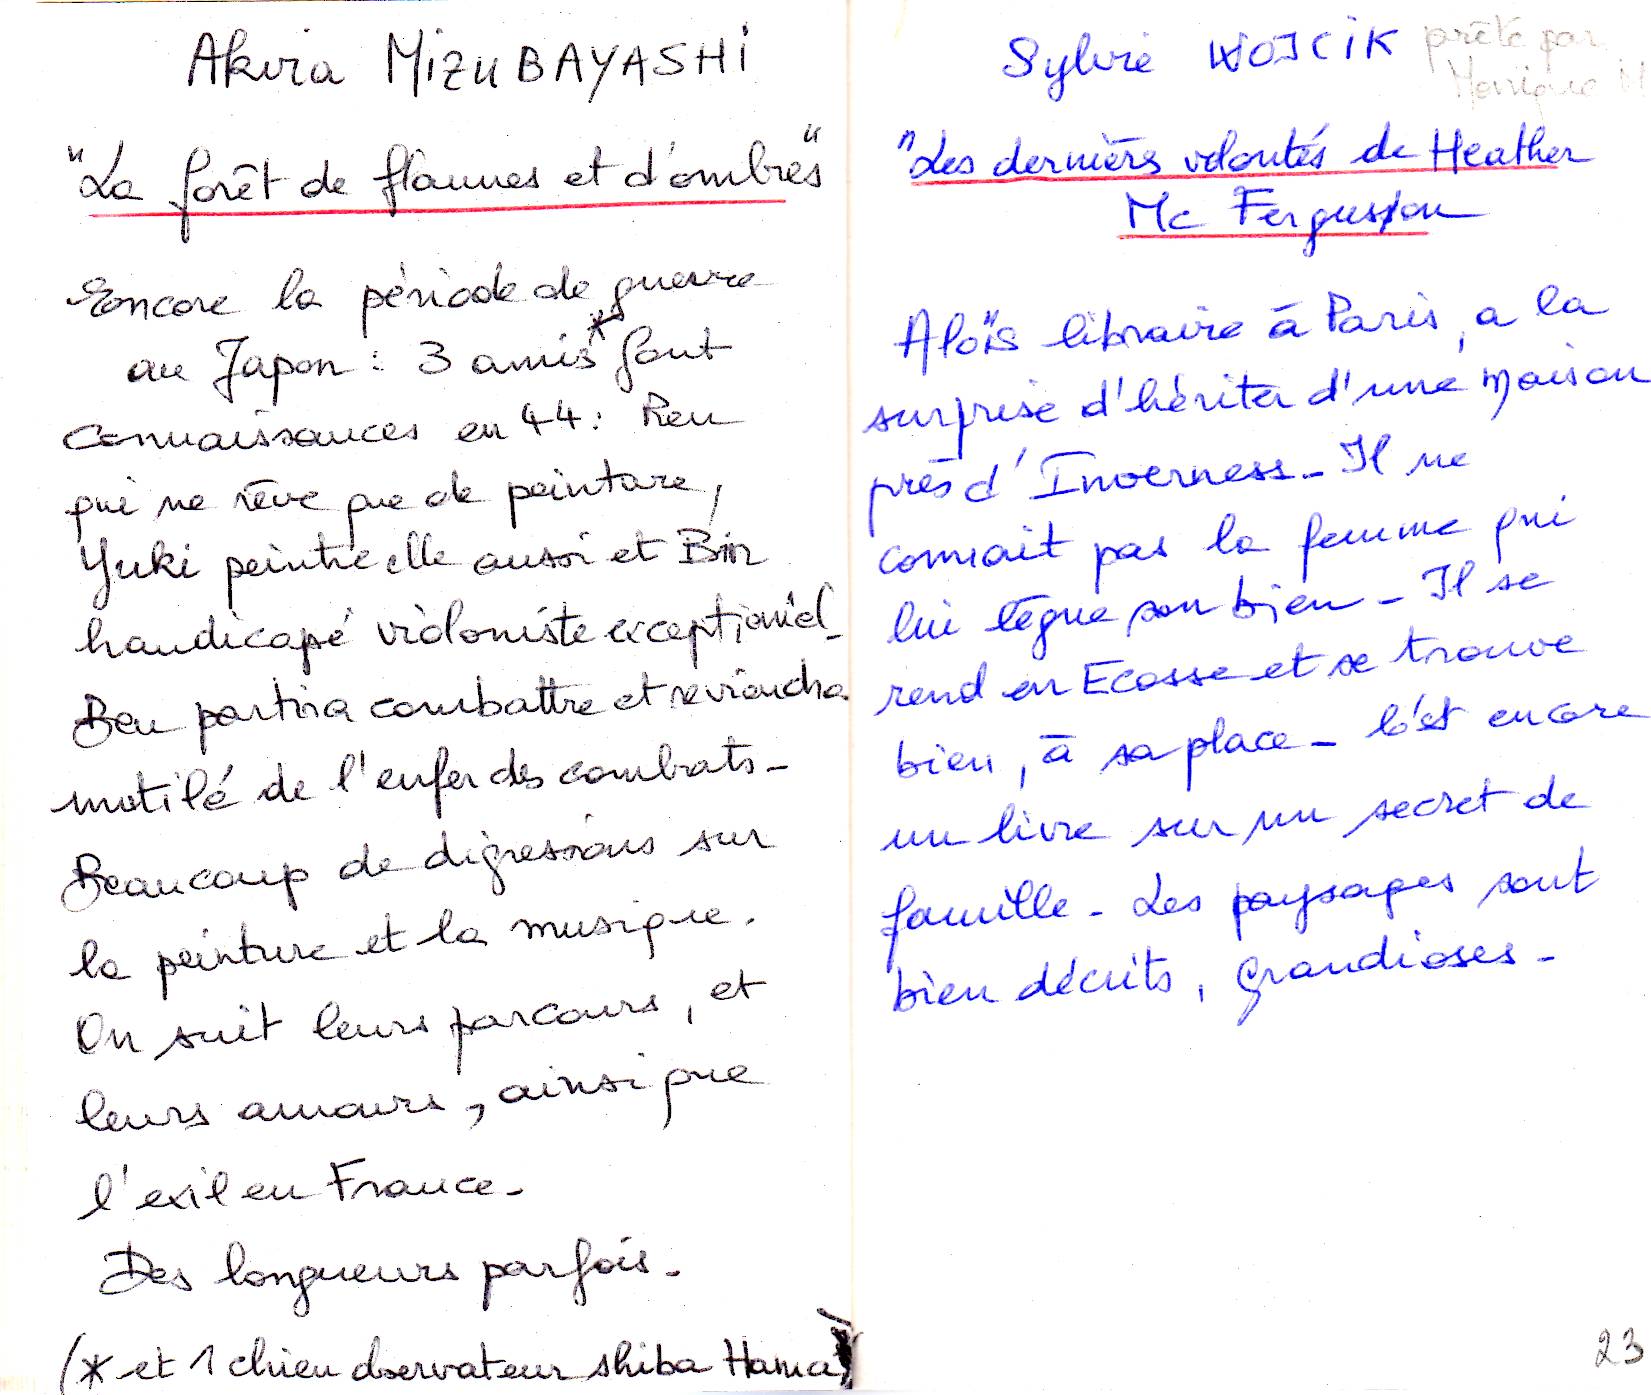 Akira MIZUBAYASHI
"La forêt de flammes et d'ombres"
Encore la période de guerre
au Japon : 3 amis* font
connaissances en 44 : Ren
qui ne rêve que de peinture,
Yuki peintre elle aussi et Bin
handicapé violoniste exceptionnel_
Ben partira combattre et reviendra
mutilé de l'enfer des combats_
Beaucoup de digressions sur
la peinture et la musique.
On suit leurs parcours, et
leurs amours, ainsi que
l'exil en France_
Des longueurs parfois_
(* et 1 chien observateur shiba Hanna)
Sylvie WOJCIK prêté par
Monique M
"Les dernières volontés de Heather
Mc Ferguson
Aloïs libraire à Paris, a la
surprise d'hériter d'une maison
près d'Inverness_ Il ne
connait pas la femme qui
lui lègue son bien_ Il se
rend en Ecosse et se trouve
bien, à sa place_ C'est encore
un livre sur un secret de
famille_ Les paysages sont
bien décrits, grandioses_
23